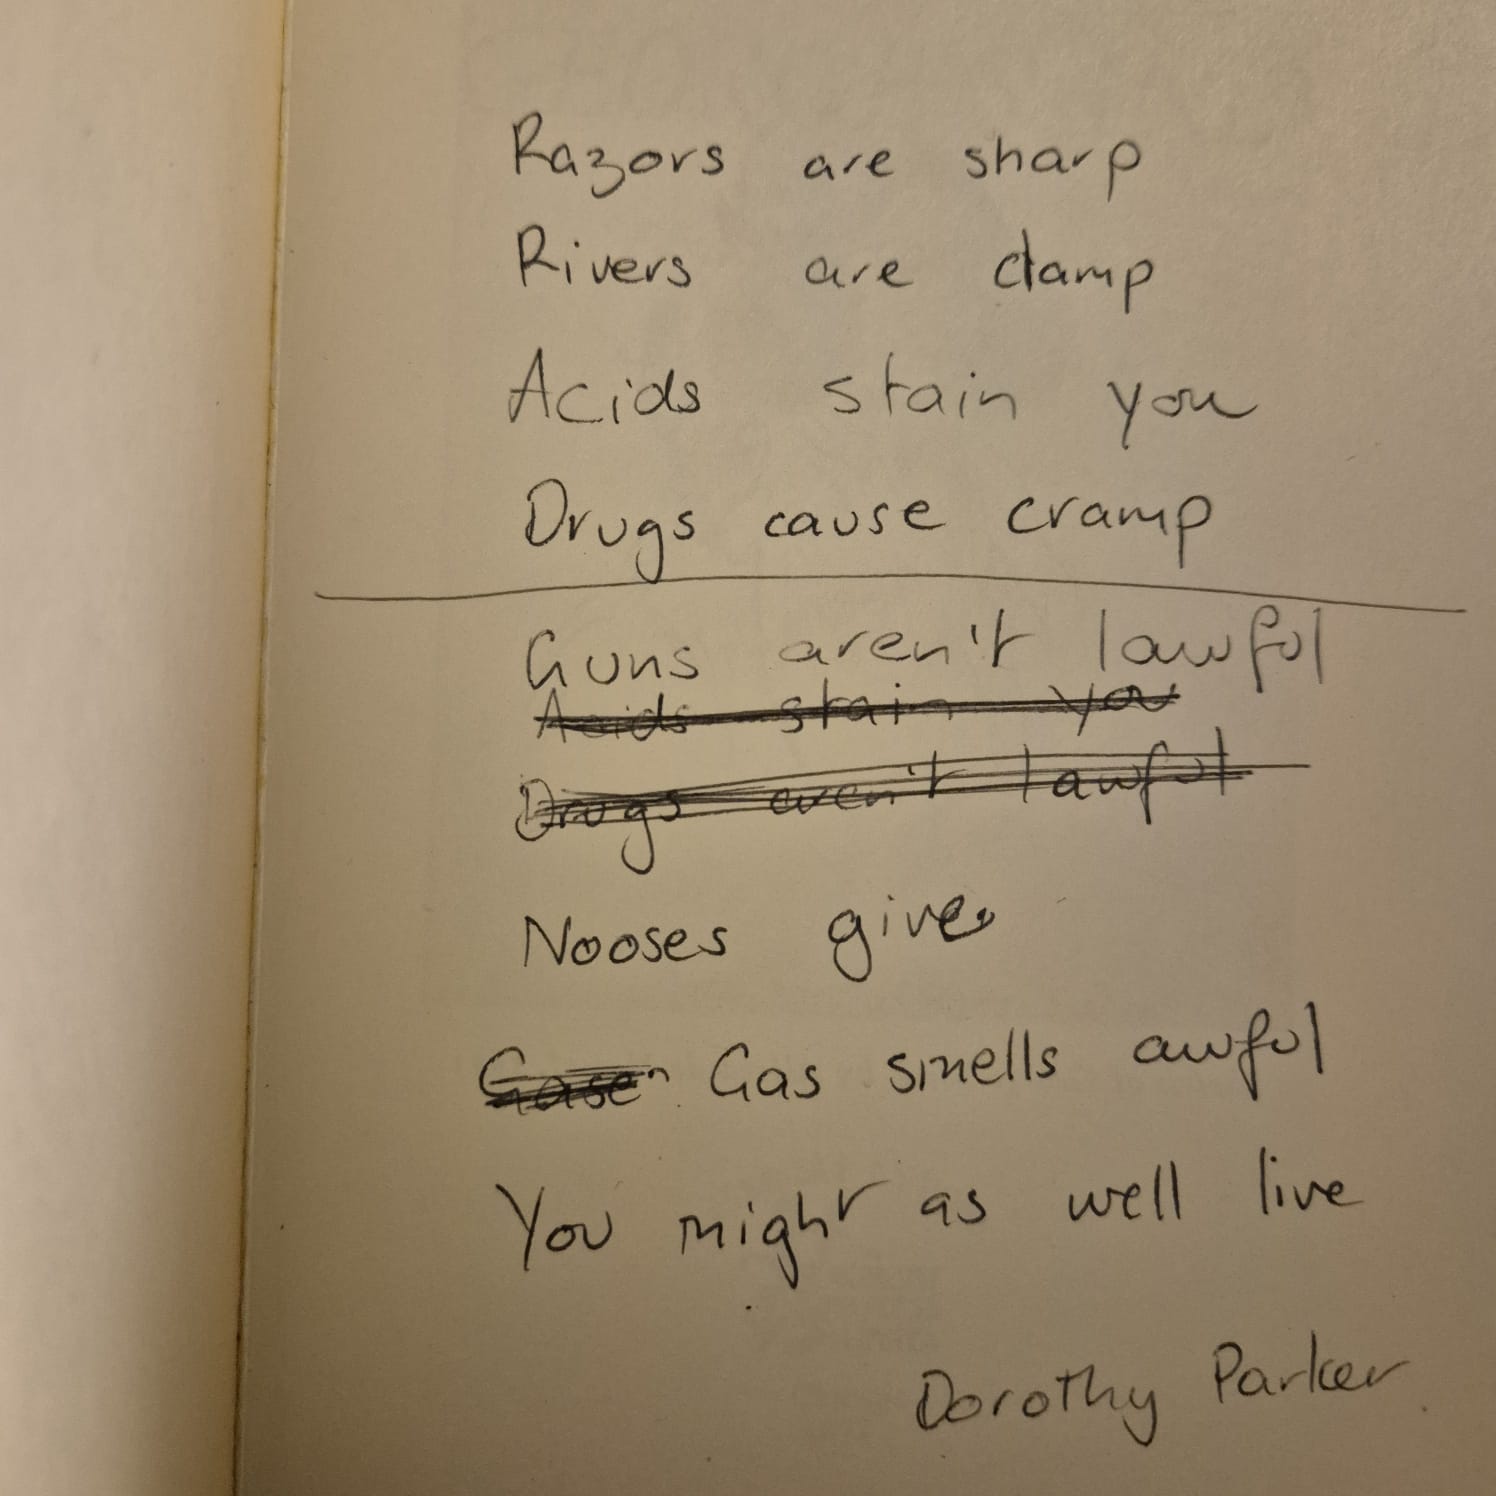 Razors are sharp
Rivers are damp
Acids stain you
Drugs cause cramp
Guns aren't lawful
Acids stain you
Drugs aren't lawful
Nooses give
Gas smells awful
You might as well live
Dorothy Parker